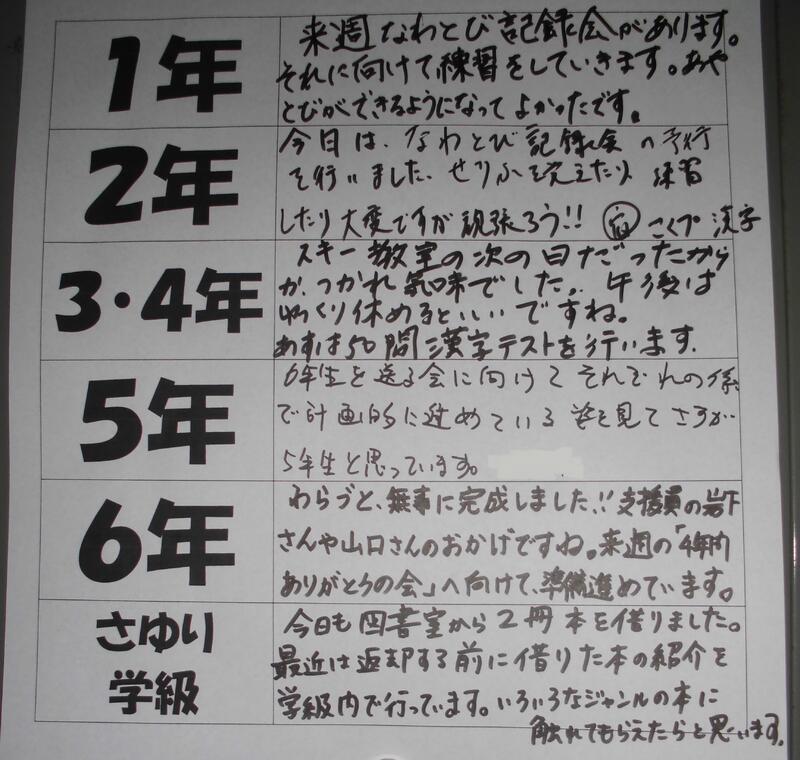 1年
来週なわとび記録会があります。
それに向けて練習をしていきます。あや
とびができるようになってよかったです。
2年
今日は、なわとび記録会の予行
を行いました、せりふを覚えたり 練習
したり大変ですが頑張ろう!! 宿 こくプ 漢字
3・4年
スキー教室の次の日だったから
か、つかれ気味でした。午後は
ゆっくり休めるといいですね。
あすは50問漢字テストを行います.
5年
6年生を送る会に向けてそれぞれの係
で計画的に進めている姿を見てさすが
5年生と思っています。
6年
わらづと、無事に完成しました!!支援員の岩下
さんや山口さんのおかげですね。来週の「4年内
ありがとうの会」へ向けて、準備進めています。
さゆり
学級
今日も図書室から2冊本を借りました。
最近は返却する前に借りた本の紹介を
学級内で行っています。いろいろなジャンルの本に
触れてもらえたらと思います。